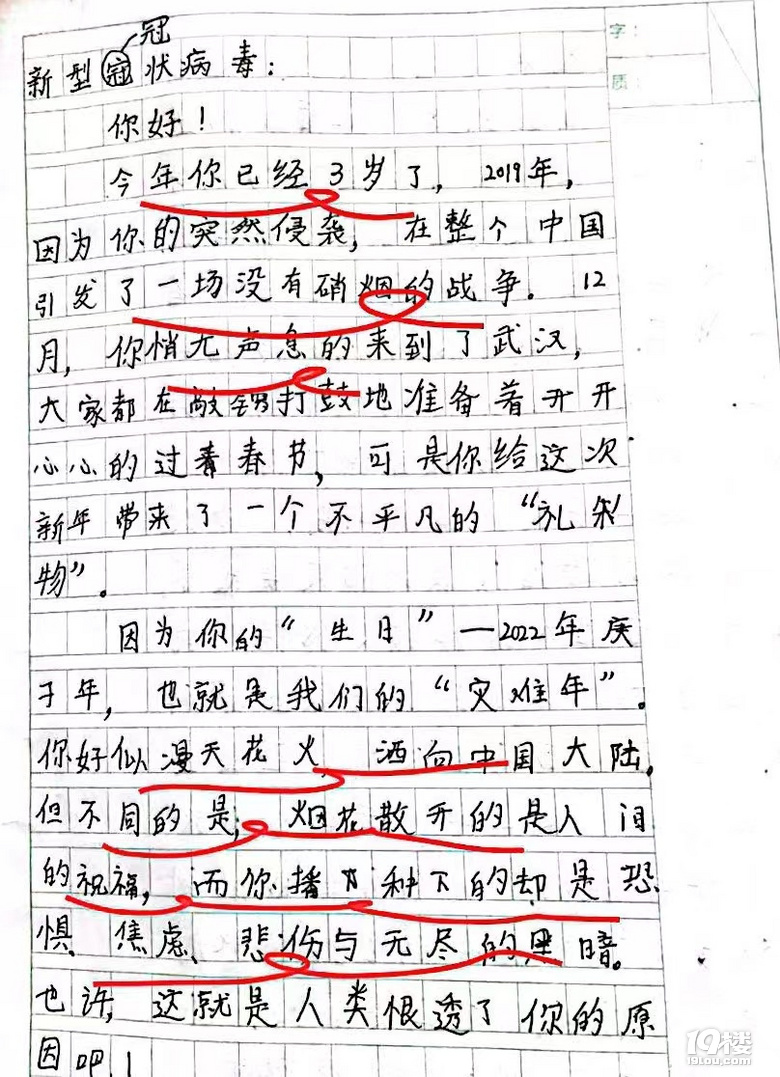 冠
字:
新型冠状病毒:
质:
你好!
今年你已经3岁了, 2019年,
因为你的突然侵袭, 在整个中国
引发了一场没有硝烟的战争。12
月, 你悄无声息的来到了武汉,
大家都在敲锣打鼓地准备着开开
心心的过春节, 可是你给这次
新年带来了一个不平凡的“礼
物”。
因为你的“生日”—2022年庚
子年, 也就是我们的“灾难年”。
你好似漫天花火, 洒向中国大陆,
但不同的是, 烟花散开的是人间
的祝福, 而你播种下的却是恐
惧、焦虑、悲伤与无尽的黑暗。
也许, 这就是人类恨透了你的原
因吧!
19楼
19lou.com